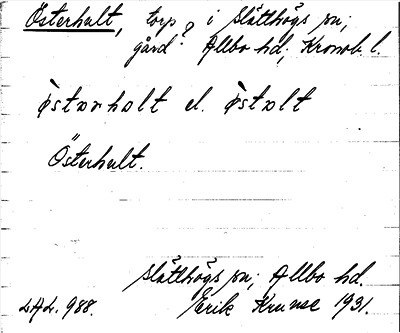 Österhult, torp? i Slätthögs sn;
gård? Allbo hd; Kronob. l.
östərhəlt el. östəlt
Österhult.
Slätthögs sn; Allbo hd.
LAL. 988. Erik Kruuse 1931.